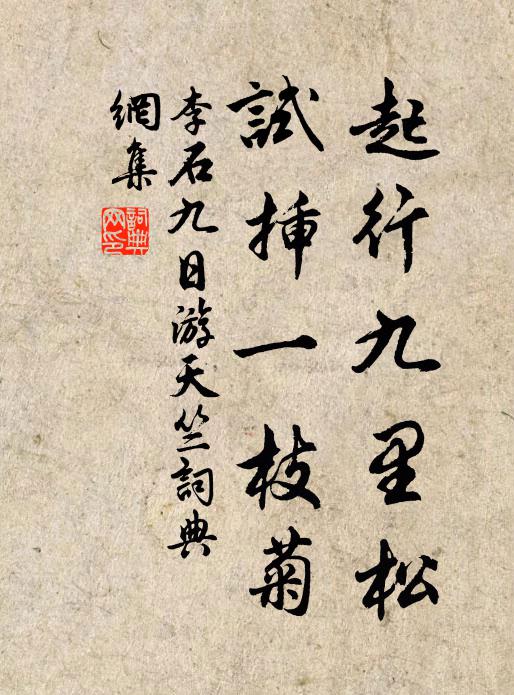 起行九里松
試挿一枝菊
李石九日游天竺詞典
網集
詞典
网印